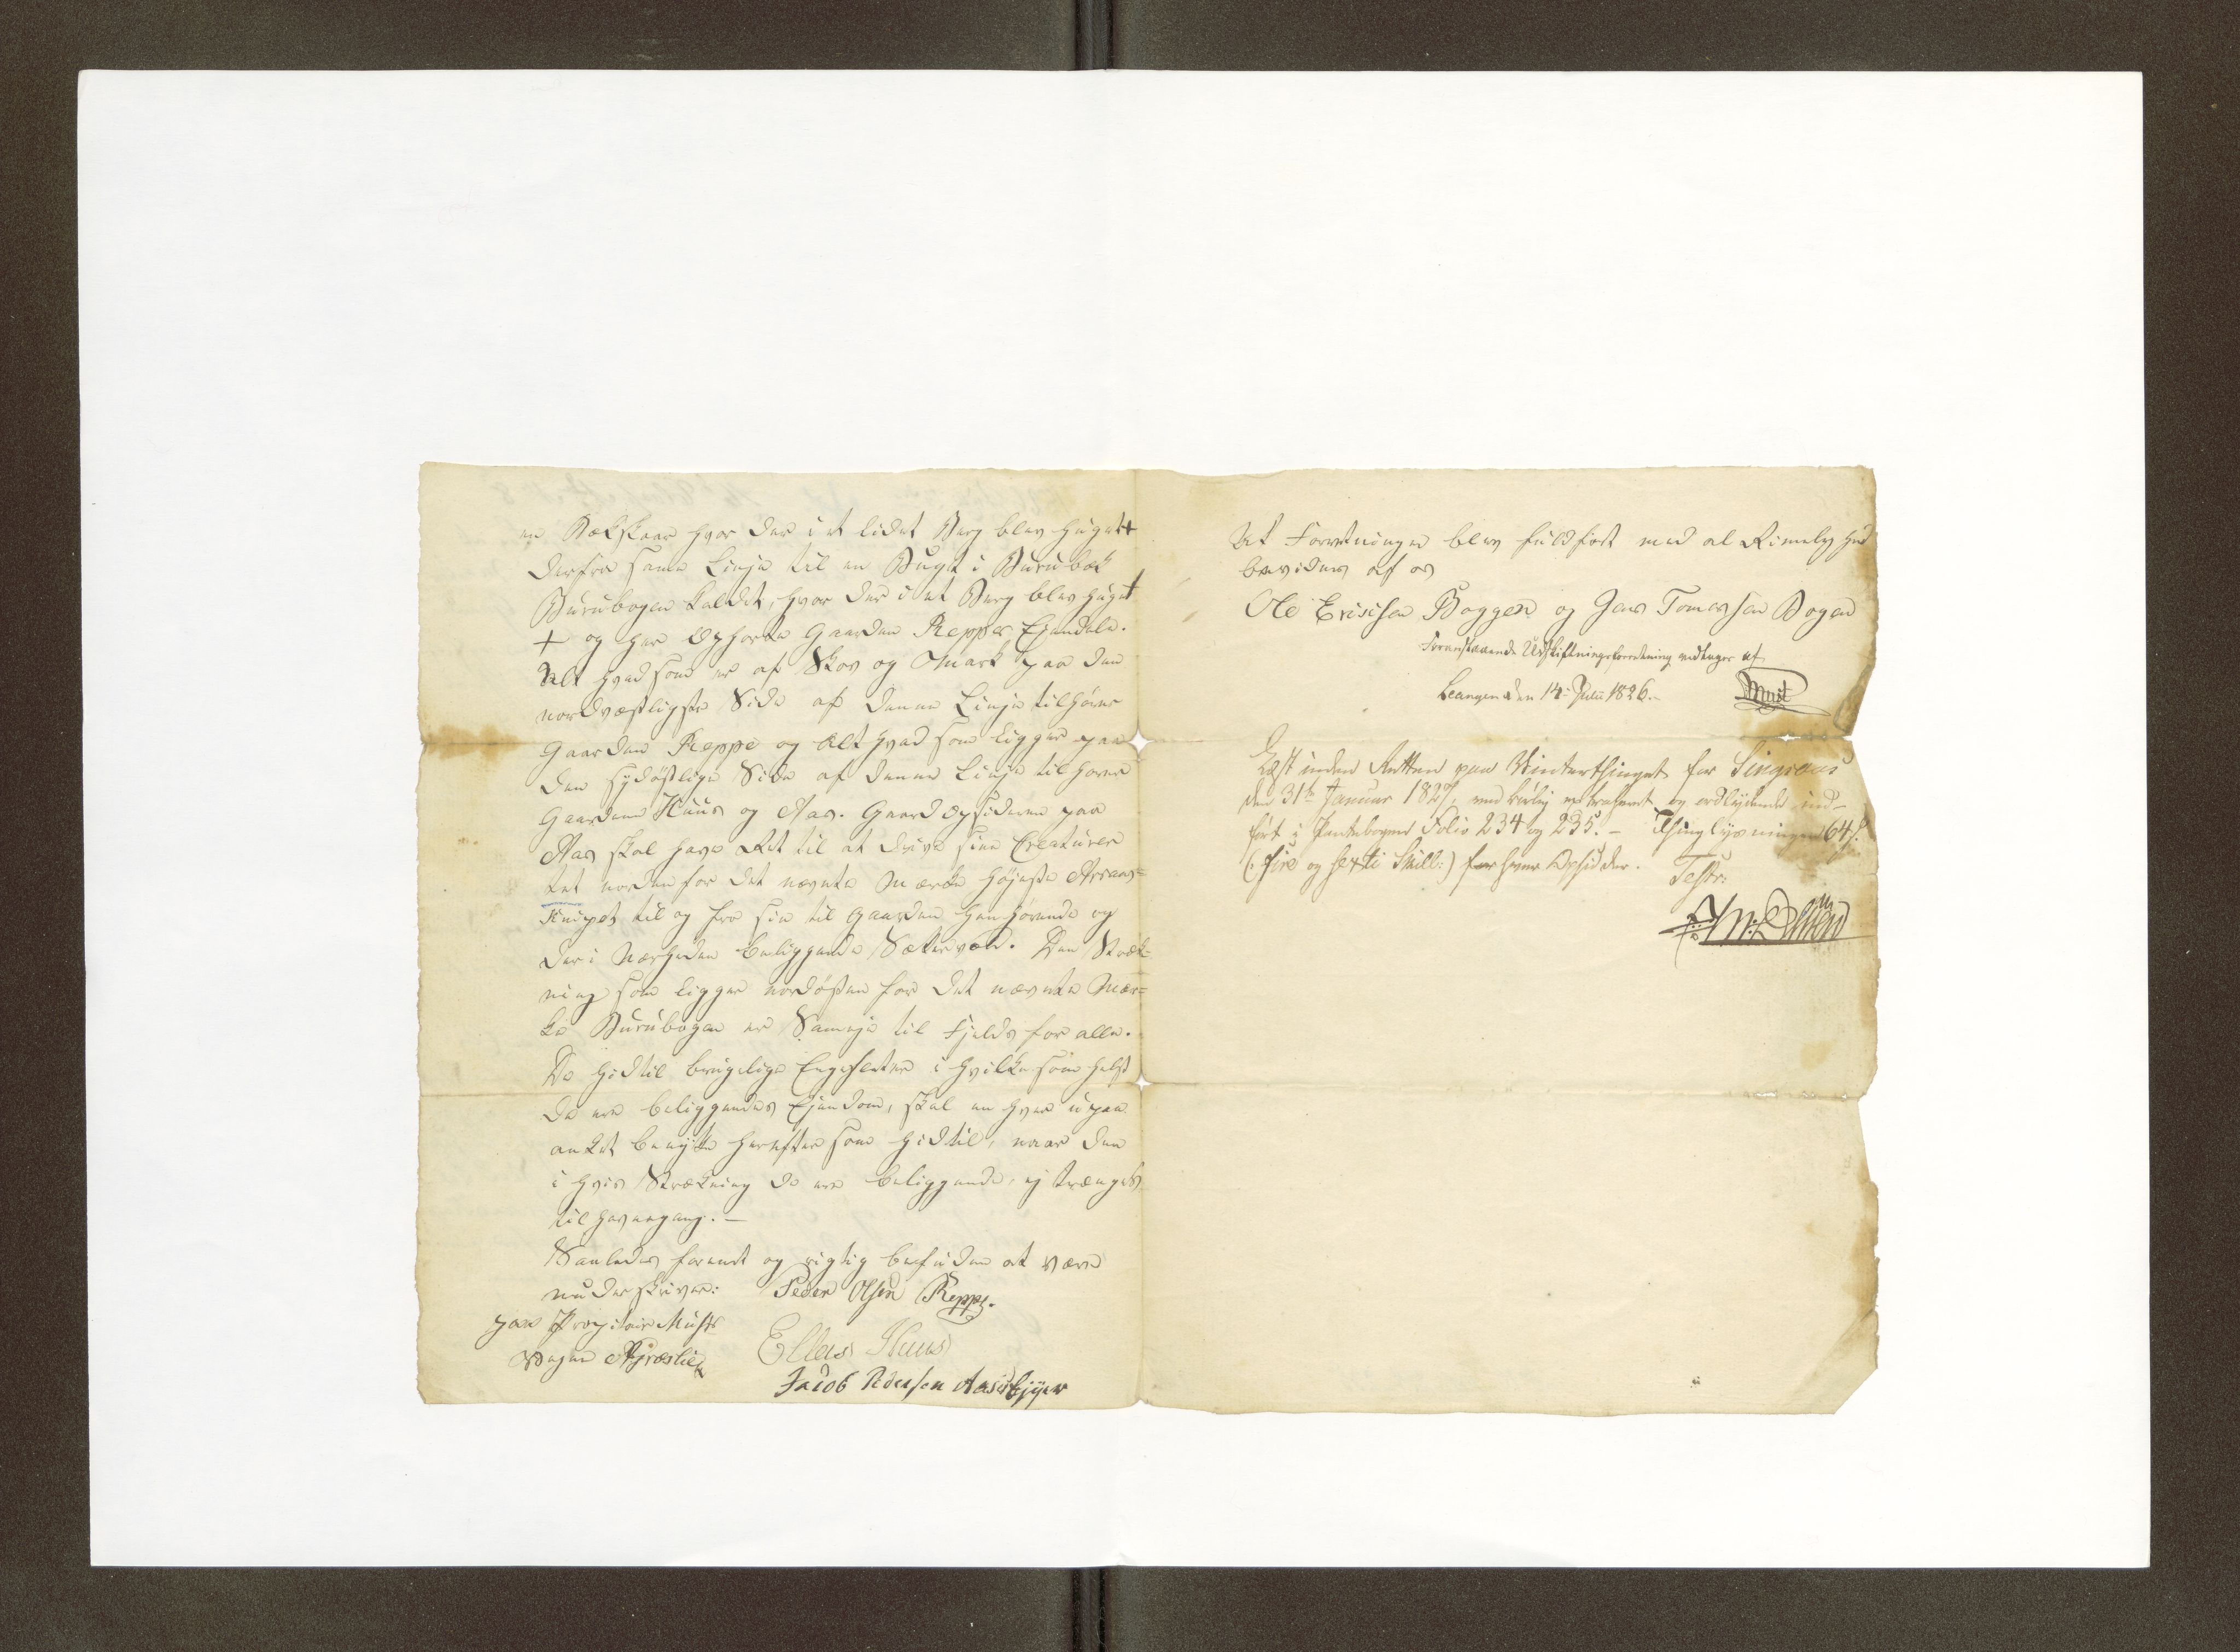 en Bækskaar hvor der i et lidet Berg blev hugget +
derfra samme Linje til en Bugt i Burubæk
Burubogen kaldet, hvor der i et Berg blev hugget
+ og her ophørte Gaarden Reppes Ejendele.
Alt hvad som er af Skov og Mark paa den
nordvæstligste Side af denne Linje tilhører
Gaarden Reppe og Alt hvad som ligger paa
den sydøstlige Side af denne Linje tilhører
Gaardene Huus og Aas. Gaard Opsidderne paa
Aas skal have Ret til at drive sine Creaturer
tæt norden for det nævnte Mærke Høieste
Knipet til og fra sin til Gaarden henhørende og
der i Nærheden beliggende Sætervold. Den Stræk=
ning som ligger nordøsten for det nævnte Mær=
ke Burubogen er Sameje til Fjelds for alle.
De hidtil brugelige Engesletter i hvilkesomhelst
de ere beliggendes Ejendom, skal en hver upaa
anket benytte herefter som hidtil, naar den
i hvis Strækning de ere beliggende, ej trænges
til Havnegang. —
Saaledes forenet og rigtig befunden at være
underskriver: Peder Olsen Reppe.
paa Propitair Musts
Vegne
Ellas Huus
Jacob Pedersen Aasbjyer
At Forretningen blev fuldført med al Rimelighed
bevidnes af os
Ole Ericksen Boggen og Jens Tomassen Bogen
Foranstaaende Udskiftningsforretning vedtages af
Leangen den 14 Julii 1826. Must
Læst inden Retten paa Vinterthinget for Singsaas
den 31te Januar 1827, ved behørig extraheret og ordlydende ind-
ført i Pantebogen Folio 234 og 235. — Thinglysningen 64 s.
(: fire og sexti Skill:) for hver Opsidder. Testr: